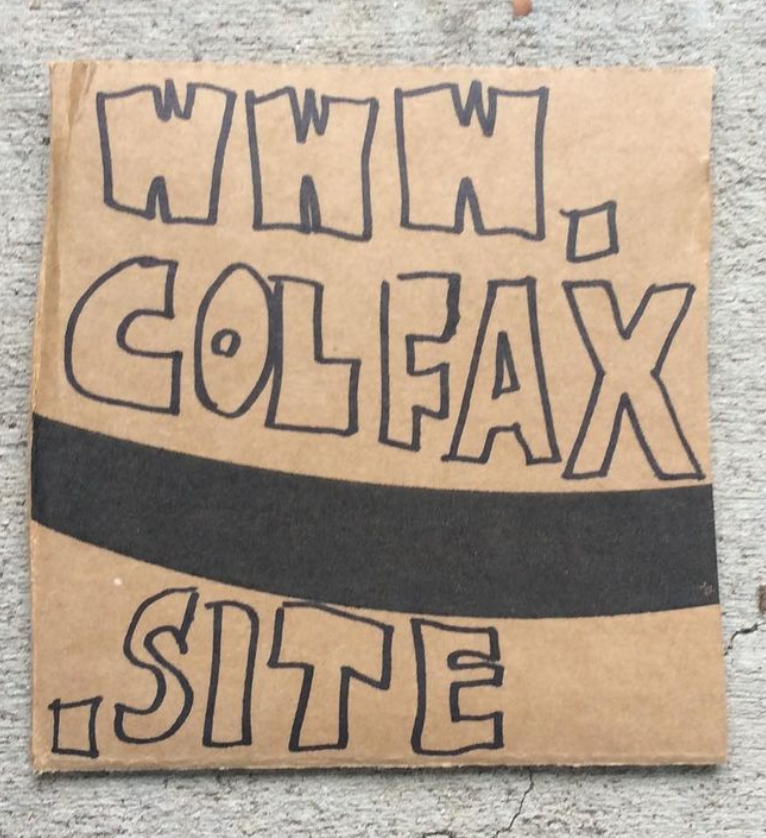 WWW.
COLFAX
.SITE